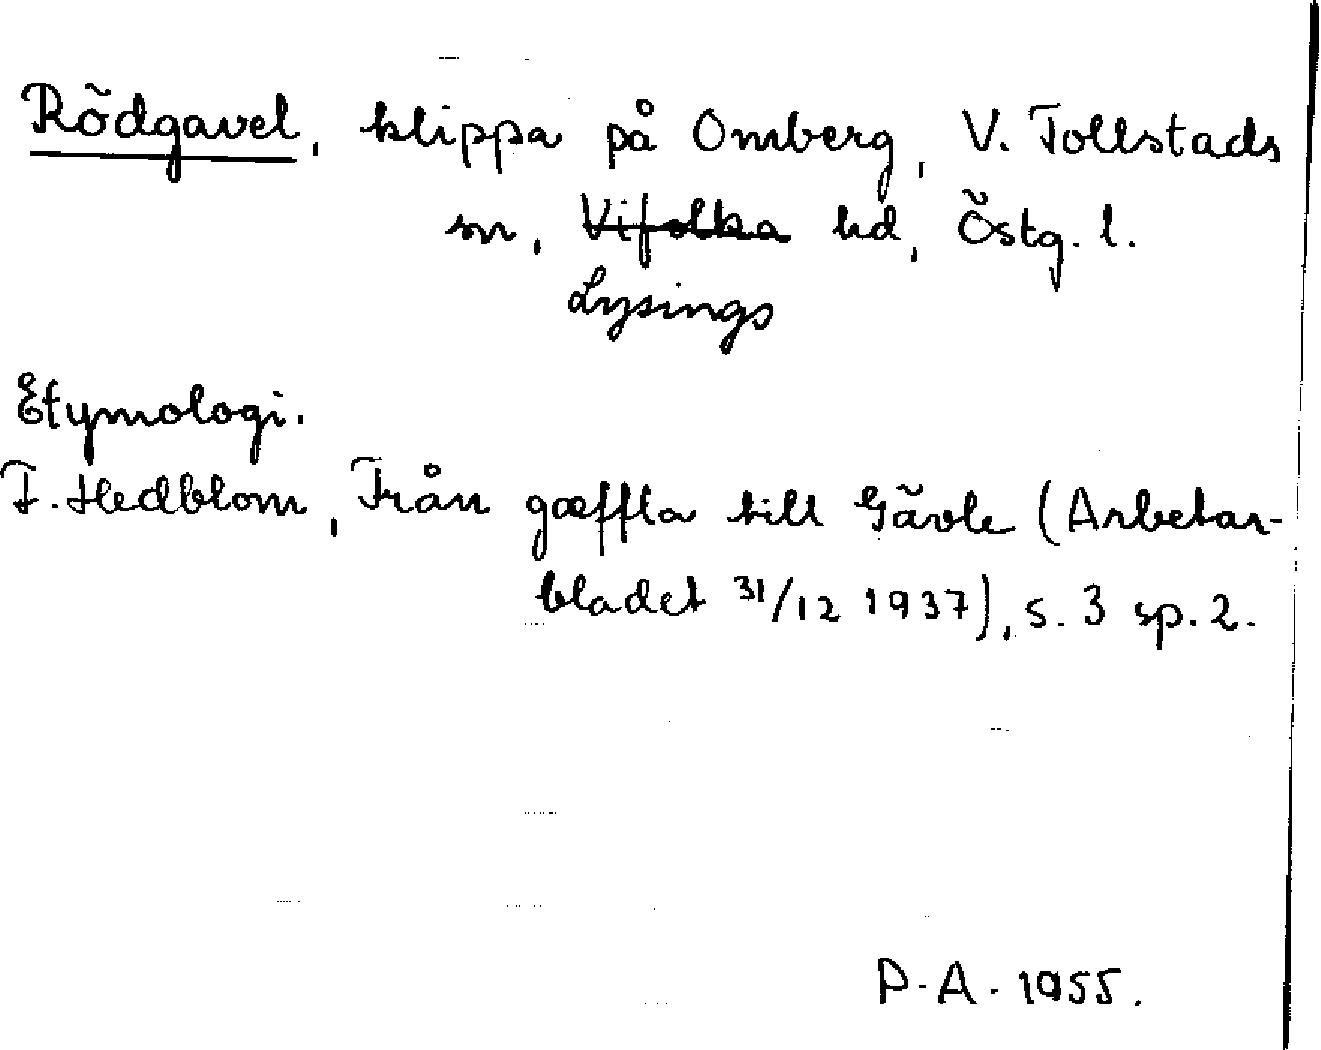 Rödgavel, klippa på Omberg, V. Tollstads
sn, Vifolka hd, Östg. l.
Lysings
Etymologi.
F. Hedblom, Från gæffla till Gävle (Arbetar-
bladet 31/12 1937), s. 3 sp. 2.
P. A. 1955.